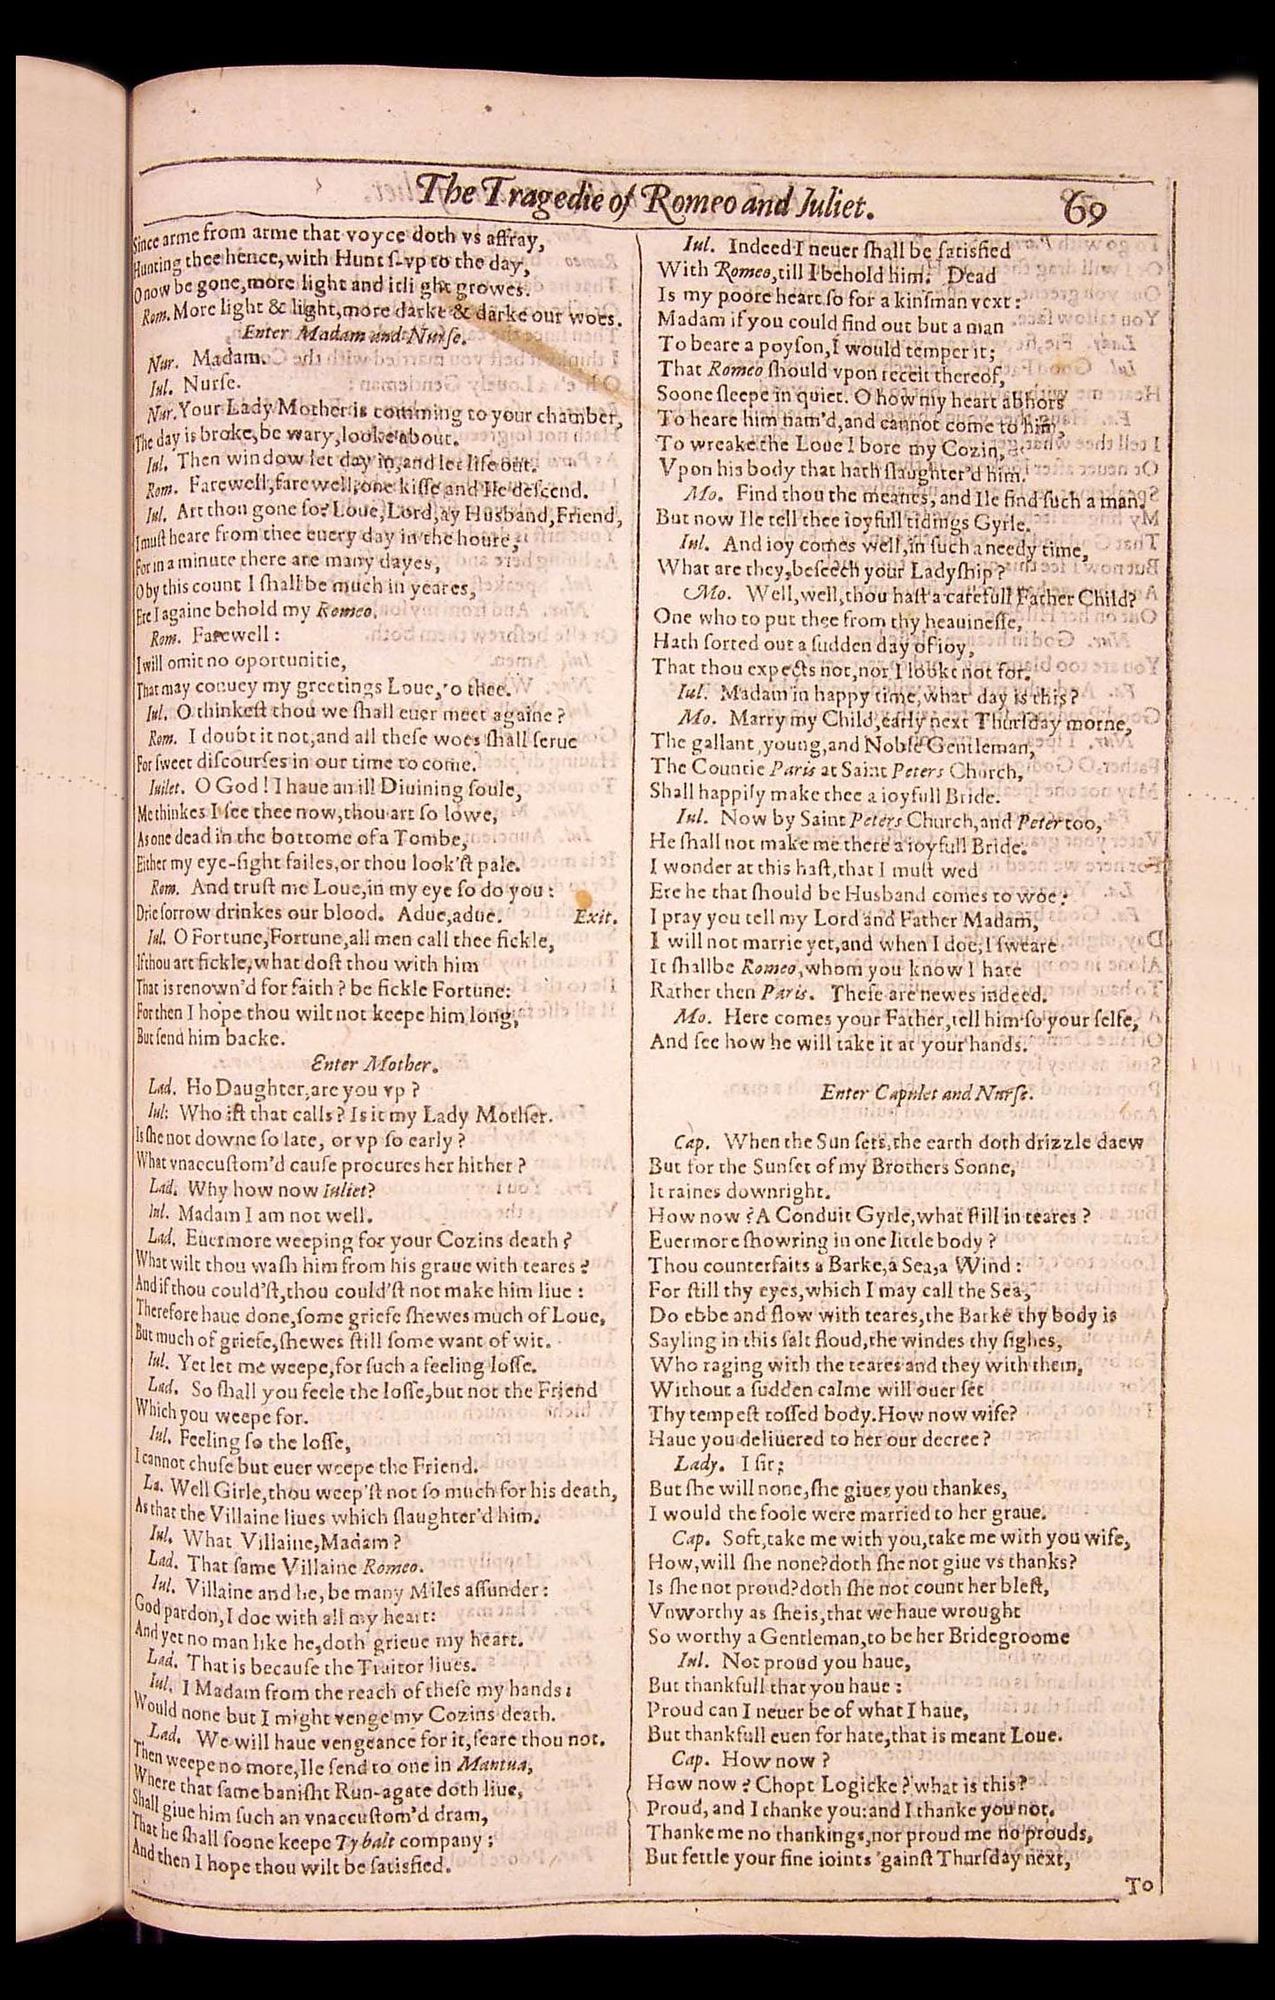 The Tragedie of Romeo and Iuliet.
69
Since arme from arme that voyce doth vs affray,
Hunting thee hence, with Hunt s-vp to the day,
O now be gone, more light and itli ght growes.
Rom. More light & light, more darke & darke our woes.
Enter Madam and Nurſe.
Nur. Madam.
Iul. Nurſe.
Nur. Your Lady Mother is comming to your chamber,
The day is broke, be wary, looke about.
Iul. Then window let day in, and let life out.
Rom. Farewell, farewell, one kiſſe and Ile deſcend.
Iul. Art thou gone ſo? Loue, Lord, ay Husband, Friend,
I muſt heare from thee euery day in the houre,
For in a minute there are many dayes,
O by this count I ſhall be much in yeares,
Ere I againe behold my Romeo.
Rom. Farewell:
I will omit no oportunitie,
That may conuey my greetings Loue, to thee.
Iul. O thinkeſt thou we ſhall euer meet againe?
Rom. I doubt it not, and all theſe woes ſhall ſerue
For ſweet diſcourſes in our time to come.
Iuilet. O God! I haue an ill Diuining ſoule,
Me thinkes I ſee thee now, thou art ſo lowe,
As one dead in the bottome of a Tombe,
Either my eye-ſight failes, or thou look'ſt pale.
Rom. And truſt me Loue, in my eye ſo do you:
Drie ſorrow drinkes our blood. Adue, adue. Exit.
Iul. O Fortune, Fortune, all men call thee fickle,
If thou art fickle, what doſt thou with him
That is renown'd for faith? be fickle Fortune:
For then I hope thou wilt not keepe him long,
But ſend him backe.
Enter Mother.
Lad. Ho Daughter, are you vp?
Iul: Who iſt that calls? Is it my Lady Mother.
Is ſhe not downe ſo late, or vp ſo early?
What vnaccuſtom'd cauſe procures her hither?
Lad. Why how now Iuliet?
Iul. Madam I am not well.
Lad. Euermore weeping for your Cozins death?
What wilt thou waſh him from his graue with teares?
And if thou could'ſt, thou could'ſt not make him liue:
Therefore haue done, ſome griefe ſhewes much of Loue,
But much of griefe, ſhewes ſtill ſome want of wit.
Iul. Yet let me weepe, for ſuch a feeling loſſe.
Lad. So ſhall you feele the loſſe, but not the Friend
Which you weepe for.
Iul. Feeling ſo the loſſe,
I cannot chuſe but euer weepe the Friend.
La. Well Girle, thou weep'ſt not ſo much for his death,
As that the Villaine liues which ſlaughter'd him.
Iul. What Villaine, Madam?
Lad. That ſame Villaine Romeo.
Iul. Villaine and he, be many Miles aſſunder:
God pardon, I doe with all my heart:
And yet no man like he, doth grieue my heart.
Lad. That is becauſe the Traitor liues.
Iul. I Madam from the reach of theſe my hands:
Would none but I might venge my Cozins death.
Lad. We will haue vengeance for it, feare thou not.
Then weepe no more, Ile ſend to one in Mantua,
Where that ſame baniſht Run-agate doth liue,
Shall giue him ſuch an vnaccuſtom'd dram,
That he ſhall ſoone keepe Tybalt company:
And then I hope thou wilt be ſatisfied.
Iul. Indeed I neuer ſhall be ſatisfied
With Romeo, till I behold him. Dead
Is my poore heart ſo for a kinſman vext:
Madam if you could find out but a man
To beare a poyſon, I would temper it;
That Romeo ſhould vpon receit thereof,
Soone ſleepe in quiet. O how my heart abhors
To heare him nam'd, and cannot come to him,
To wreake the Loue I bore my Cozin,
Vpon his body that hath ſlaughter'd him.
Mo. Find thou the meanes, and Ile find ſuch a man.
But now Ile tell thee ioyfull tidings Gyrle.
Iul. And ioy comes well, in ſuch a needy time,
What are they, beſeech your Ladyſhip?
Mo. Well, well, thou haſt a carefull Father Child?
One who to put thee from thy heauineſſe,
Hath ſorted out a ſudden day of ioy,
That thou expects not, nor I lookt not for.
Iul. Madam in happy time, what day is this?
Mo. Marry my Child, early next Thurſday morne,
The gallant, young, and Noble Gentleman,
The Countie Paris at Saint Peters Church,
Shall happily make thee a ioyfull Bride.
Iul. Now by Saint Peters Church, and Peter too,
He ſhall not make me there a ioyfull Bride.
I wonder at this haſt, that I muſt wed
Ere he that ſhould be Husband comes to woe:
I pray you tell my Lord and Father Madam,
I will not marrie yet, and when I doe, I ſweare
It ſhallbe Romeo, whom you know I hate
Rather then Paris. Theſe are newes indeed.
Mo. Here comes your Father, tell him ſo your ſelfe,
And ſee how he will take it at your hands.
Enter Capulet and Nurſe.
Cap. When the Sun ſets, the earth doth drizzle daew
But for the Sunſet of my Brothers Sonne,
It raines downright.
How now? A Conduit Gyrle, what ſtill in teares?
Euermore ſhowring in one little body?
Thou counterfaits a Barke, a Sea, a Wind:
For ſtill thy eyes, which I may call the Sea,
Do ebbe and flow with teares, the Barke thy body is
Sayling in this ſalt floud, the windes thy ſighes,
Who raging with the teares and they with them,
Without a ſudden calme will ouer ſet
Thy tempeſt toſſed body. How now wife?
Haue you deliuered to her our decree?
Lady. I ſir;
But ſhe will none, ſhe giues you thankes,
I would the foole were married to her graue.
Cap. Soft, take me with you, take me with you wife,
How, will ſhe none? doth ſhe not giue vs thanks?
Is ſhe not proud? doth ſhe not count her bleſt,
Vnworthy as ſhe is, that we haue wrought
So worthy a Gentleman, to be her Bridegroome
Iul. Not proud you haue,
But thankfull that you haue:
Proud can I neuer be of what I haue,
But thankfull euen for hate, that is meant Loue.
Cap. How now?
How now? Chopt Logicke? what is this?
Proud, and I thanke you: and I thanke you not.
Thanke me no thankings, nor proud me no prouds,
But fettle your fine ioints 'gainſt Thurſday next,
To